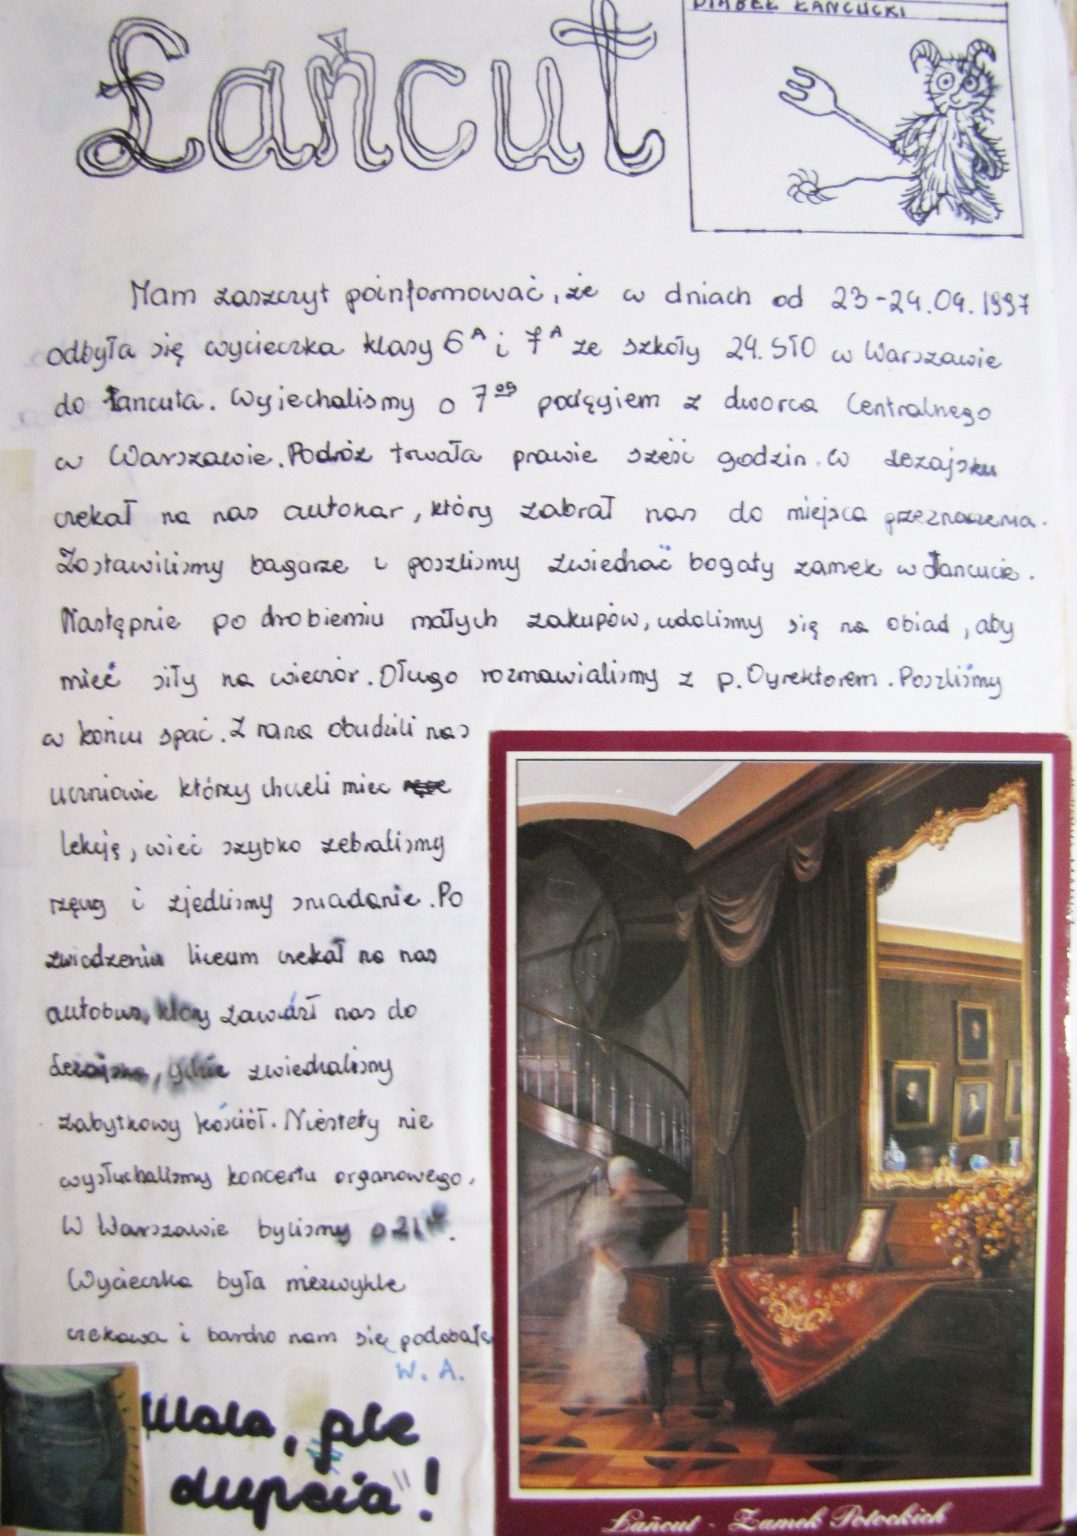 Łańcut
DIABEŁ ŁAŃCUCKI
Mam zaszczyt poinformować, że w dniach od 23-24.04.1997
odbyła się wycieczka klasy 6A i 7A ze szkoły 24. STO w Warszawie
do Łańcuta. Wyjechaliśmy o 7 pociągiem z dworca Centralnego
w Warszawie. Podróż trwała prawie sześć godzin. W Leżajsku
czekał na nas autokar, który zabrał nas do miejsca przeznaczenia.
Zostawilismy bagarze i poszlismy zwiedzać bogaty zamek w Łancucie.
Następnie po drobieniu małych zakupów, udalismy się na obiad, aby
mieć siły na wieczór. Długo rozmawialismy z p. Dyrektorem. Poszliśmy
w końcu spać. Z rana obudzili nas
uczniowie którzy chcieli miec
lekcję, wieć szybko zebralismy
rzeczy i zjedlismy sniadanie. Po
zwiedzeniu liceum czekał na nas
autobus, który zawiózł nas do
Leżajska, gdzie zwiedzalismy
zabytkowy kościół. Niestety nie
wysłuchalismy koncertu organowego.
W Warszawie bylismy o 21.
Wycieczka była niezwykle
ciekawa i bardzo nam się podobała
W. A.
Mała, ale
dupcia"!
Łańcut - Zamek Potockich